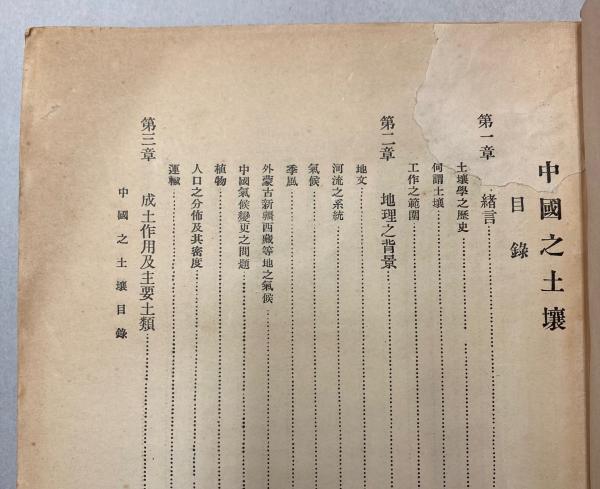 中國之土壤
目錄
第一章　緒言
土壤學之歷史
何謂土壤
工作之範圍
第二章　地理之背景
地文
河流之系統
氣候
季風
外蒙古新疆西藏等地之氣候
中國氣候變更之問題
植物
人口之分佈及其密度
運輸
第三章　成土作用及主要土類
中國之土壤目錄